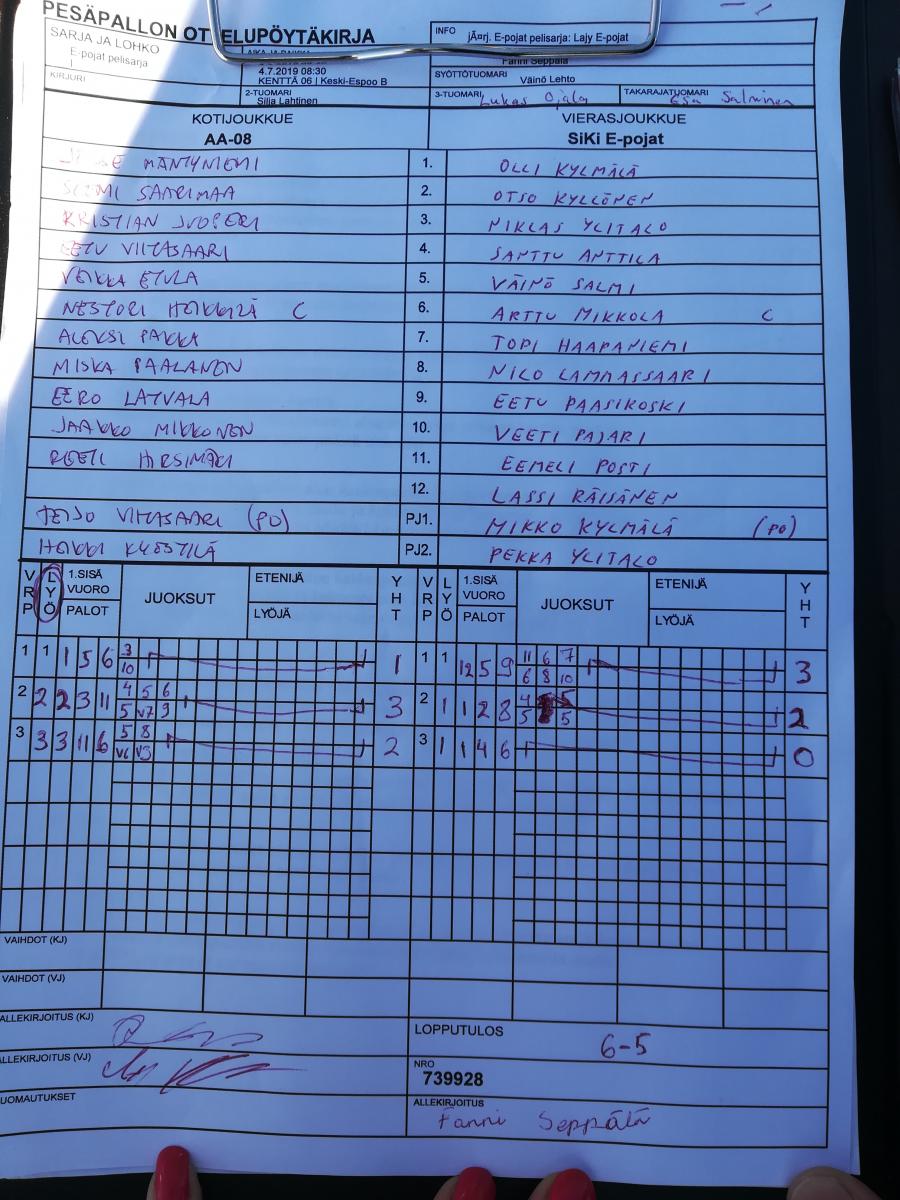 PESÄPALLON OT ELUPÖYTÄKIRJA
INFO jÄ¤rj. E-pojat pelisarja: Lajy E-pojat
SARJA JA LOHKO
E-pojat pelisarja
Fanni Seppälä
4.7.2019 08:30
KENTTÄ 06 | Keski-Espoo B
KIRJURI
SYÖTTÖTUOMARI Väinö Lehto
2-TUOMARI
Silja Lahtinen
3-TUOMARI Lukas Ojala
TAKARAJATUOMARI Esa Salminen
KOTIJOUKKUE VIERASJOUKKUE
AA-08 SiKi E-pojat
MÄNTYNIEMI 1. OLLI KYLMÄLÄ
SAARIMAA 2. OTSO KYLLÖNEN
KRISTIAN 3. NIKLAS YLITALO
EETU VIITASAARI 4. SANTTU ANTTILA
VEIKKA ETULA 5. VÄINÖ SALMI
NESTORI HEIKKILÄ C 6. ARTTU MIKKOLA C
ALEKSI PAKKA 7. TOPI HAAPANIEMI
MISKA PAALANEN 8. NILO LAMMASSAARI
EERO LATVALA 9. EETU PAASIKOSKI
JAAKKO MIKKONEN 10. VEETI PAJARI
ROOPE HIRSIMÄKI 11. EEMELI POSTI
12. LASSI RÄISÄNEN
VIITASAARI (PO) PJ1. MIKKO KYLMÄLÄ (PO)
HEIKKI PJ2. PEKKA YLITALO
VRP LYÖ 1.SISÄ VUORO PALOT JUOKSUT ETENIJÄ LYÖJÄ YHT VRP LYÖ 1.SISÄ VUORO PALOT JUOKSUT ETENIJÄ LYÖJÄ YHT
1 1 1 5 6 3 1 1 1 12 5 9 11 6 7 3
10 6 8 10
2 2 2 3 11 4 5 6 3 2 1 1 2 8 4 5 2
5 V7 9 5 5
3 3 3 11 6 5 8 2 3 1 1 4 6 0
V6 V3
VAIHDOT (KJ)
VAIHDOT (VJ)
ALLEKIRJOITUS (KJ)
LOPPUTULOS 6-5
ALLEKIRJOITUS (VJ)
NRO
739928
UOMAUTUKSET
ALLEKIRJOITUS
Fanni Seppälä